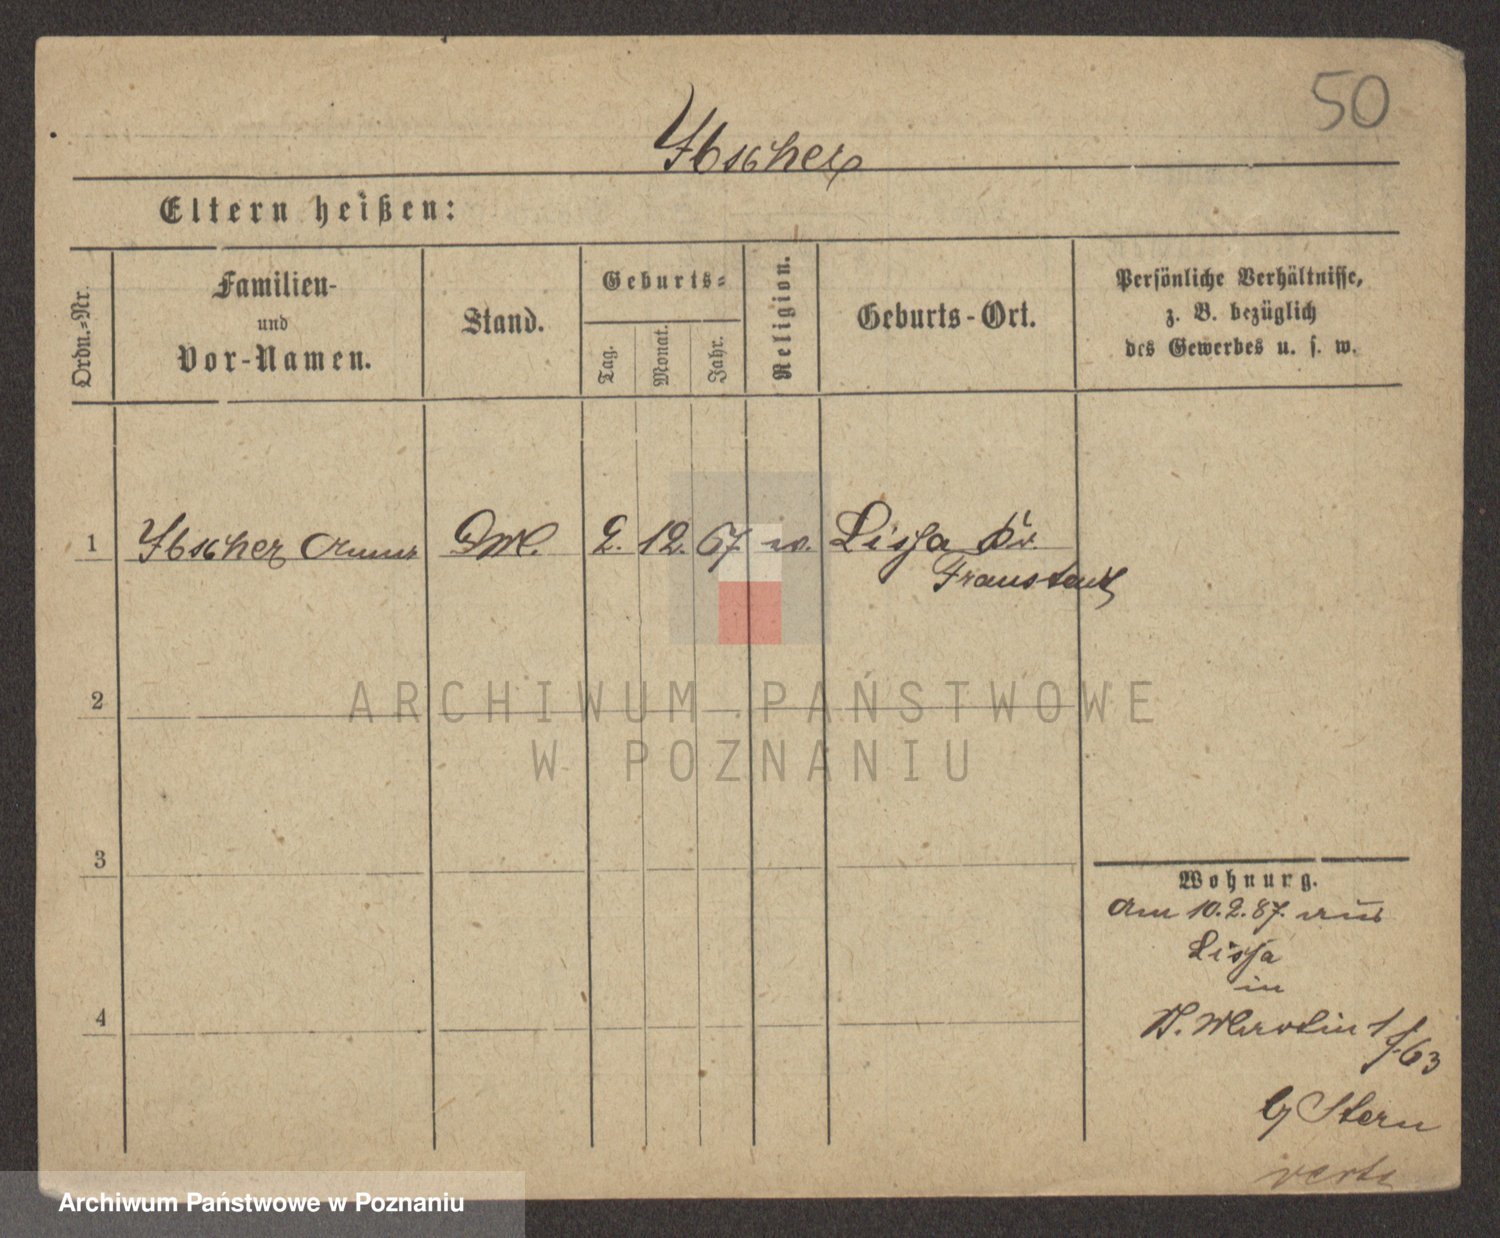 50
Ibscher
Eltern heißen:
Ordn.-Nr.
Familien-
und
Vor-Namen.
Stand.
Geburts-
Tag.
Monat.
Jahr.
Religion.
Geburts-Ort.
Persönliche Verhältnisse,
z. B. bezüglich
des Gewerbes u. s. w.
1 Ibscher Anna 2. 12. 67 Lissa Kr.
Fraustadt
2
3
4
ARCHIWUM PAŃSTWOWE
W POZNANIU
Wohnung.
Am 10.2.87. aus
Lissa
in
St. Martin
63
Stern
verte
Archiwum Państwowe w Poznaniu